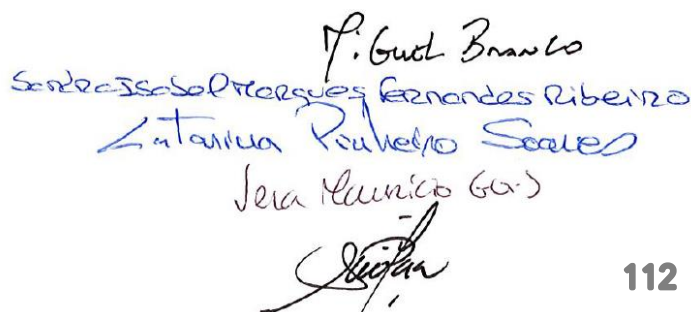 Miguel Branco
Sandra Isabel Marques Fernandes Ribeiro
Catarina Pinheiro Soares
Vera Maurício
112